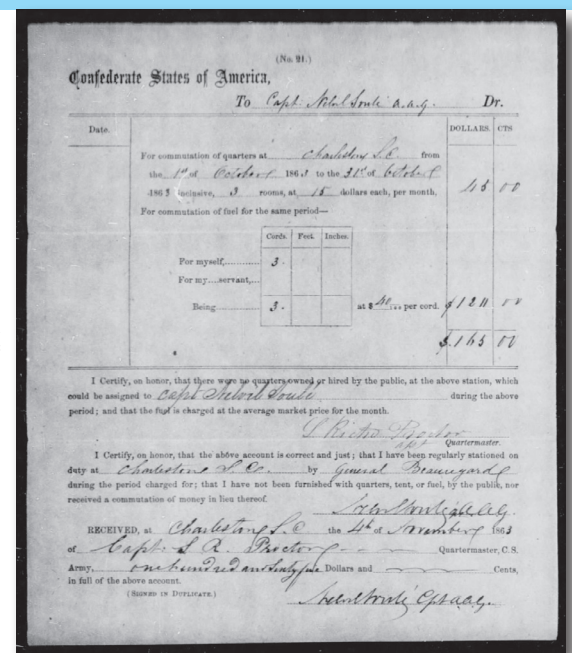 (No. 21.)
Confederate States of America,
To Capt. Nelvil Soulé a.a.g. Dr.
Date. DOLLARS. CTS
For commutation of quarters at Charleston S.C. from
the 1st of October 1863 to the 31st of October
1863 inclusive, 3 rooms, at 15 dollars each, per month, 45 00
For commutation of fuel for the same period—
Cords. Feet. Inches.
For myself, 3.
For my....servant,
Being 3. at $ 40 per cord. $120 00
$165 00
I Certify, on honor, that there were no quarters owned or hired by the public, at the above station, which
could be assigned to Capt Nelvil Soulé during the above
period; and that the fuel is charged at the average market price for the month.
Proctor
Quartermaster.
I Certify, on honor, that the above account is correct and just; that I have been regularly stationed on
duty at Charleston S. Ca. by General Beauregard
during the period charged for; that I have not been furnished with quarters, tent, or fuel, by the public, nor
received a commutation of money in lieu thereof.
A.A.G.
RECEIVED, at Charleston S.C the 4th of November 1863
of Capt. S. R. Proctor Quartermaster, C. S.
Army, one hundred and sixty five Dollars and Cents,
in full of the above account.
(SIGNED IN DUPLICATE.)
Nelvil Soulé Cpt a.a.g.